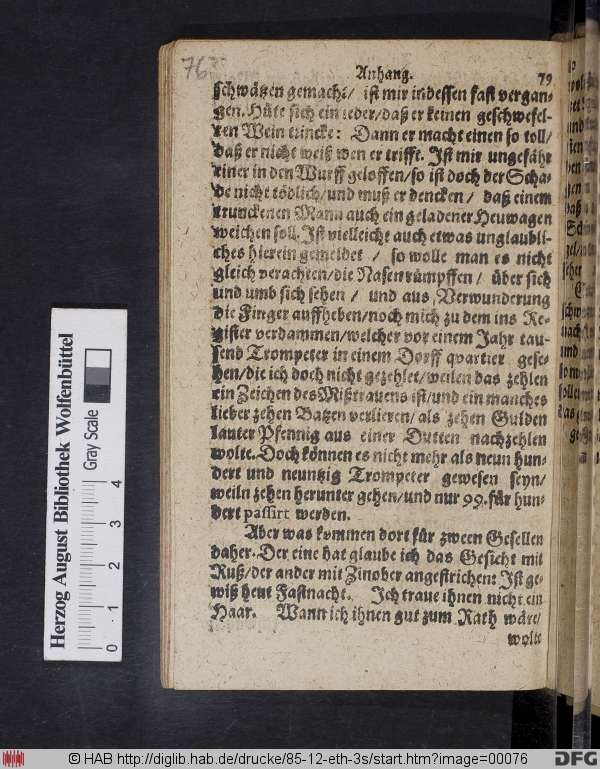 763
Anhang. 79
schwätzen gemacht/ ist mir indessen fast vergan-
gen. Hüte sich ein ieder/daß er keinen geschwefel-
ten Wein trincke: Dann er macht einen so toll/
daß er nicht weiß wen er trifft. Ist mir ungefähr
einer in den Wurff geloffen/so ist doch der Scha-
de nicht tödlich/und muß er dencken/ daß einem
trunckenen Mann auch ein geladener Heuwagen
weichen soll. Ist vielleicht auch etwas unglaubli-
ches hierein gemeldet / so wolle man es nicht
gleich verachten/die Nasen rümpffen / über sich
und umb sich sehen / und aus Verwunderung
die Finger auffheben/noch mich zu dem ins Re-
gister verdammen/welcher vor einem Jahr tau-
send Trompeter in einem Dorff qvartier gese-
hen/die ich doch nicht gezehlet/weilen das zehlen
ein Zeichen des Mißtrauens ist/und ein manches
lieber zehen Batzen verlieren/als zehen Gulden
lauter Pfennig aus einer Dutten nachzehlen
wolte. Doch können es nicht mehr als neun hun-
dert und neuntzig Trompeter gewesen seyn/
weiln zehen herunter gehen/und nur 99. für hun-
dert passirt werden.
Aber was kommen dort für zween Gesellen
daher. Der eine hat glaube ich das Gesicht mit
Ruß/der ander mit Zinober angestrichen: Ist ge-
wiß heut Fastnacht. Ich traue ihnen nicht ein
Haar. Wann ich ihnen gut zum Rath wäre/
wolte
Herzog August Bibliothek Wolfenbüttel
Gray Scale
0 1 2 3 4
© HAB http://diglib.hab.de/drucke/85-12-eth-3s/start.htm?image=00076
DFG